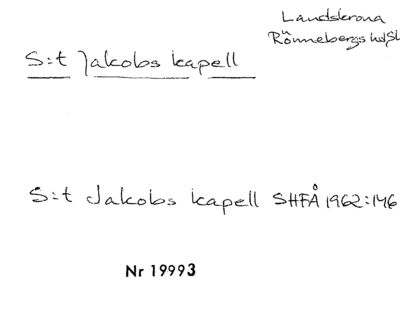 Landskrona
Rönnebergs hd, Sk
S:t Jakobs kapell
S:t Jakobs kapell SHFÅ 1962:146
Nr 19993